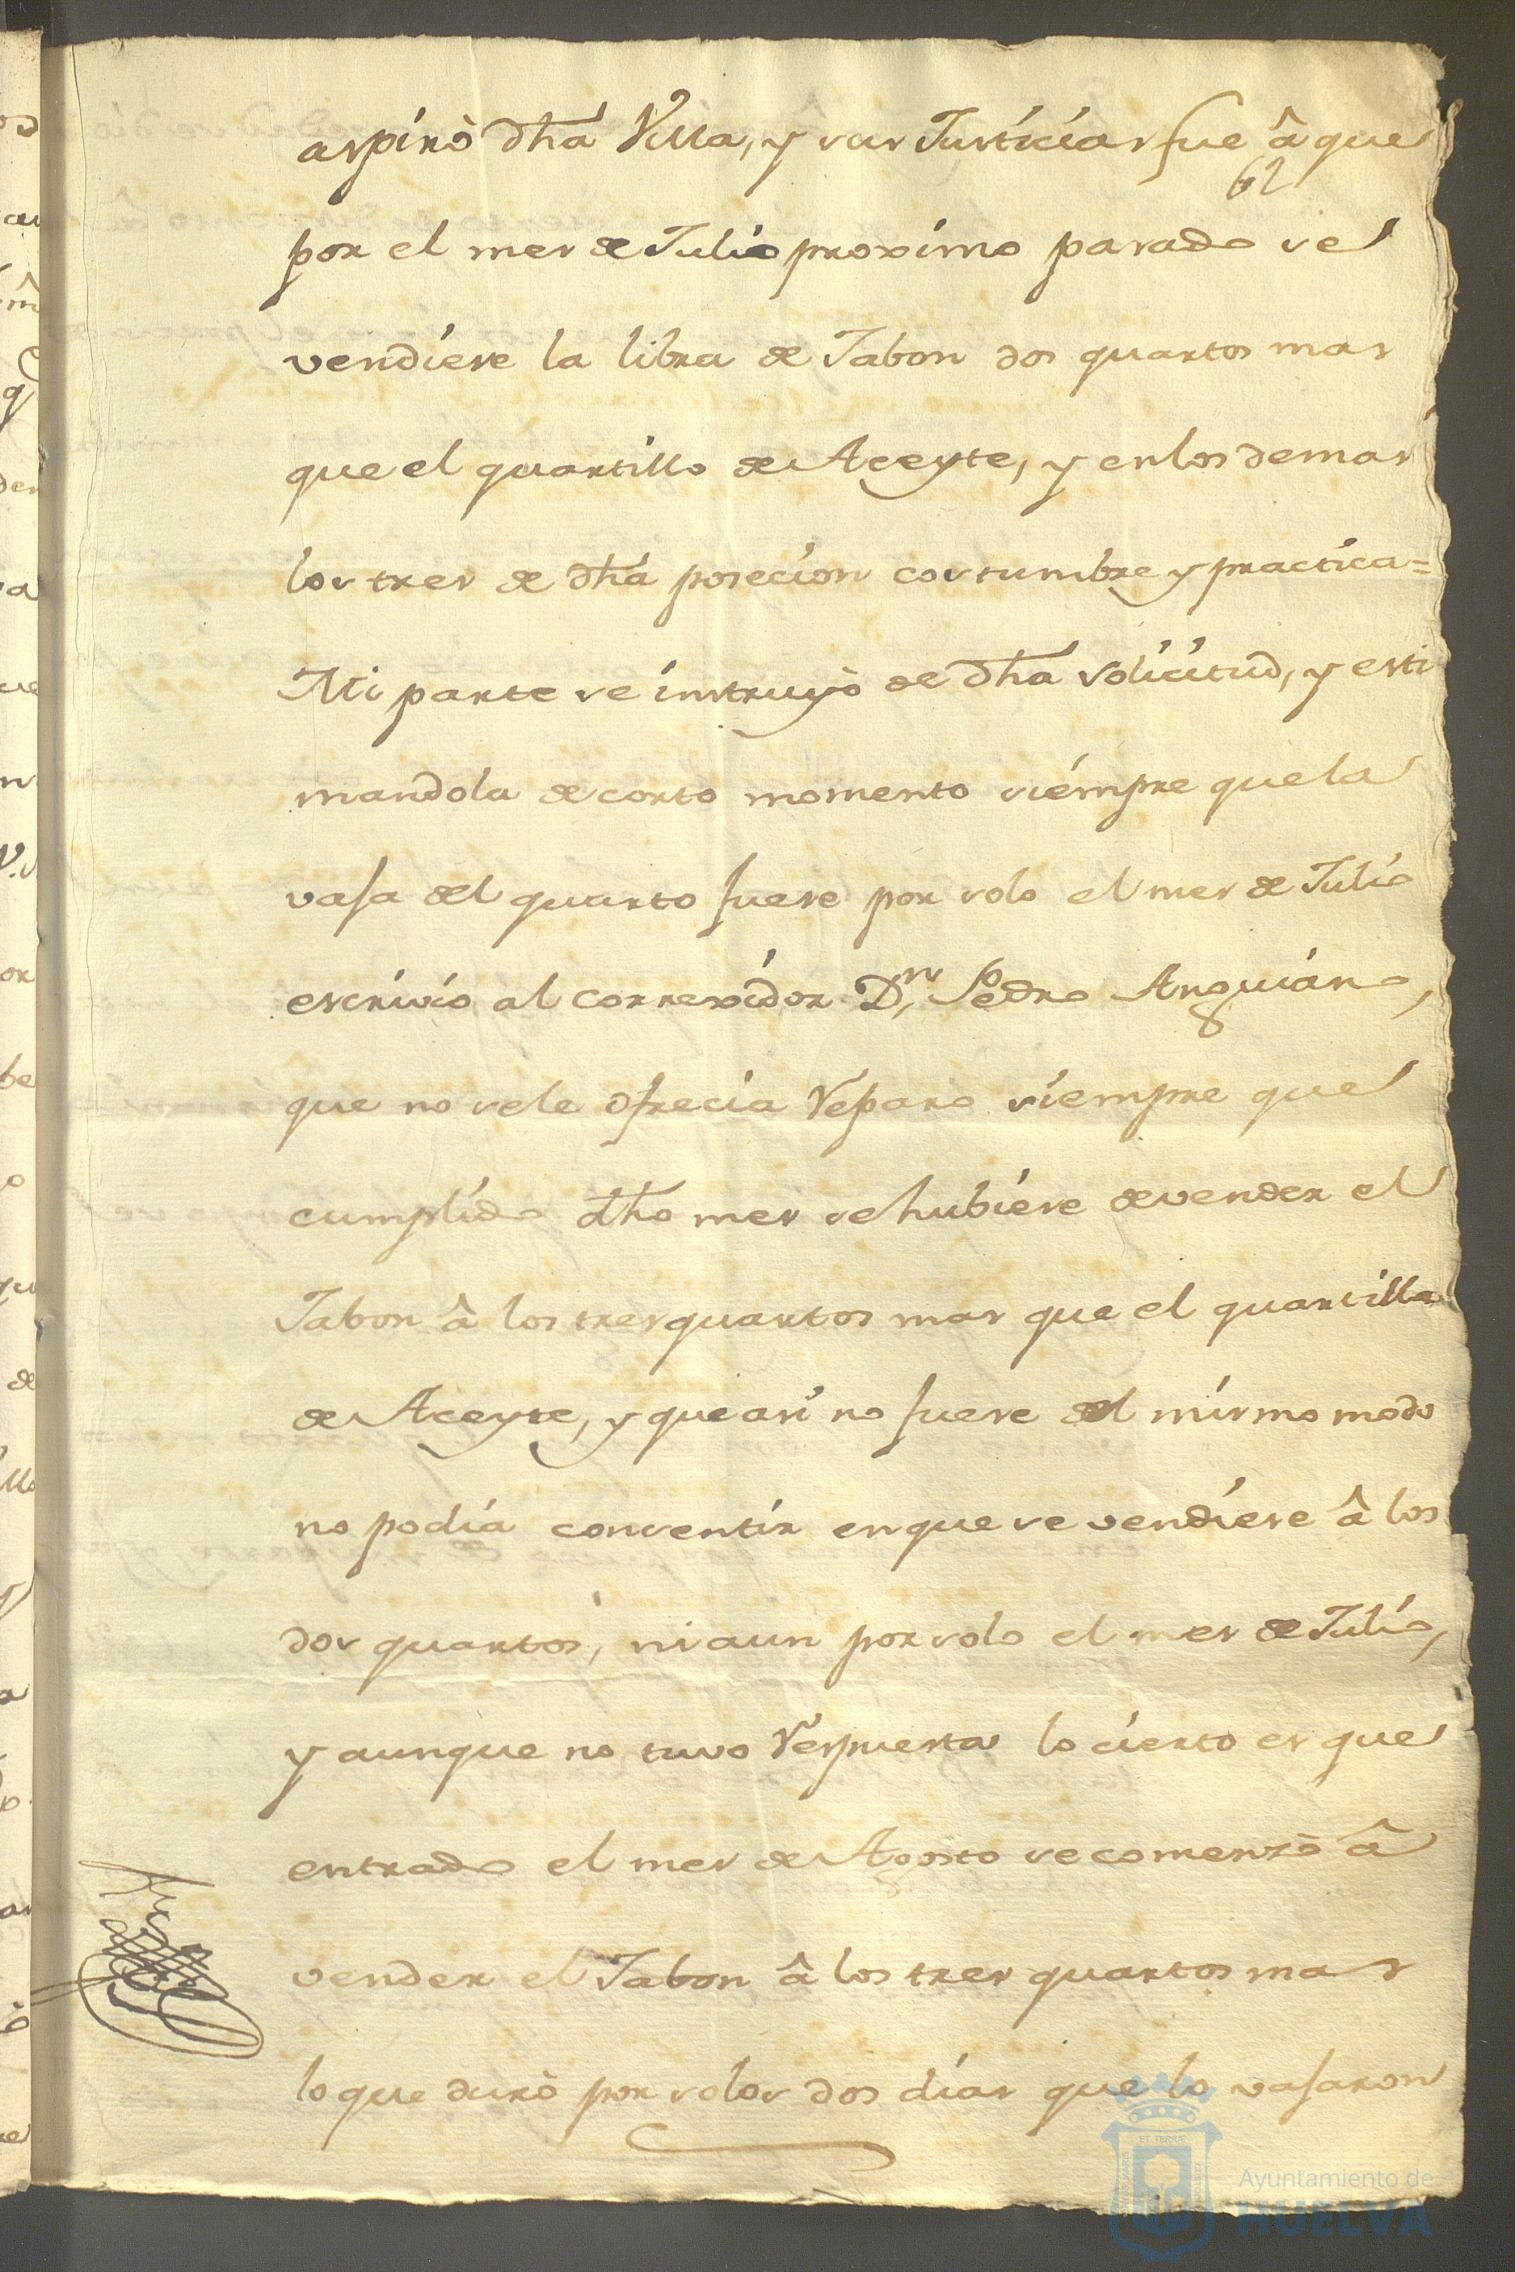 aspirò dha Villa, y sus Justicias fue â que
62
por el mes de Julio proximo pasado se
vendiese la libra de Jabon dos quartos mas
que el quartillo de Aceyte, y en los demas
los tres de dha posecion costumbre y practica=
Mi parte se instruyò de dha solicitud, y esti
mandola de corto momento siempre que la
vaja del quarto fuese por solo el mes de Julio
escrivio al correxidor Dn. Pedro Anguiano,
que no sele ofrecia Reparo siempre que
cumplido dho mes se hubiese de vender el
Jabon â los tres quartos mas que el quartillo
de Aceyte, y que asi no fuese del mismo modo
no podia consentir en que se vendiese â los
dos quartos, ni aun por solo el mes de Julio,
y aunque no tuvo Respuesta lo cierto es que
entrado el mes de Agosto se comenzò â
vender el Jabon â los tres quartos mas
lo que durò por solos dos dias que lo vajaron
ET TERRÆ
Ayuntamiento de
HUELVA